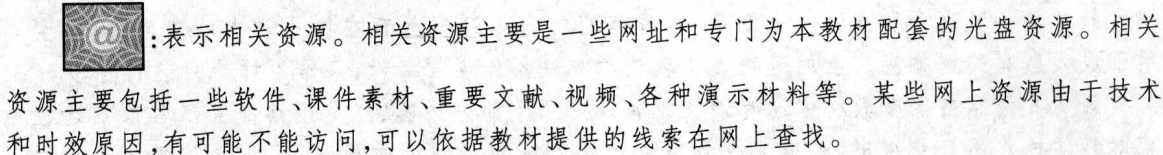 @:表示相关资源。相关资源主要是一些网址和专门为本教材配套的光盘资源。相关
资源主要包括一些软件、课件素材、重要文献、视频、各种演示材料等。某些网上资源由于技术
和时效原因,有可能不能访问,可以依据教材提供的线索在网上查找。